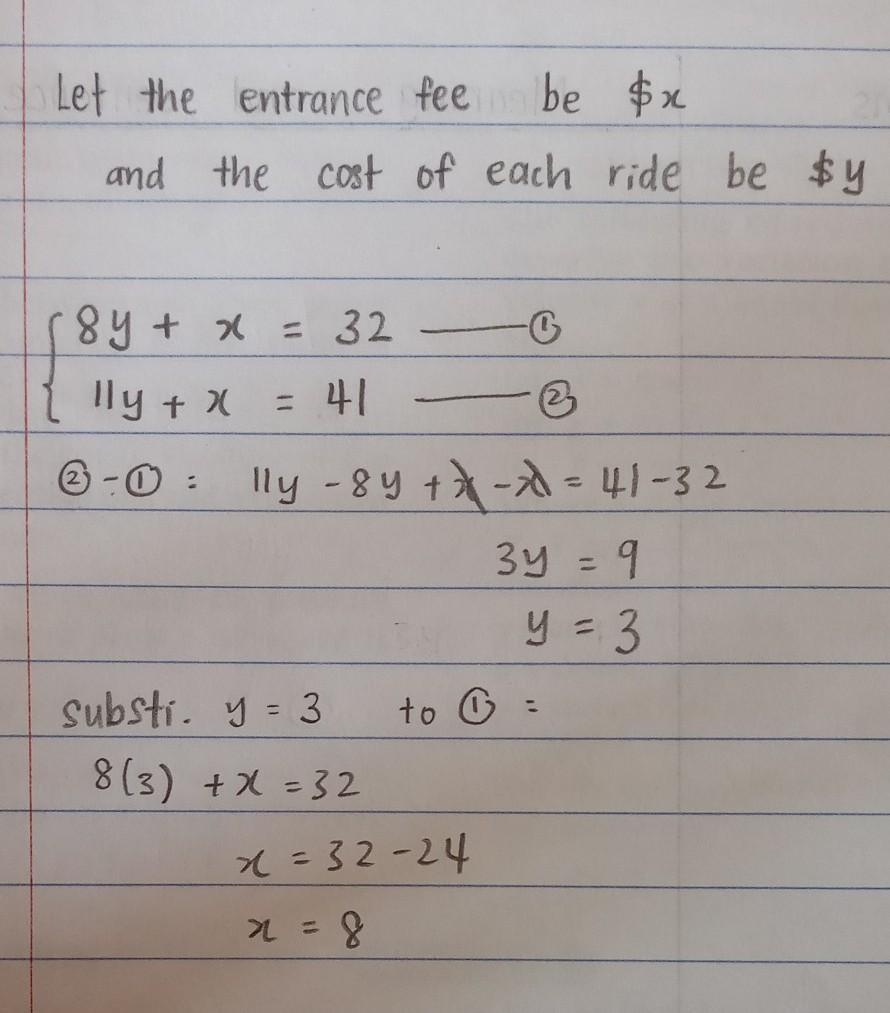 Let the entrance fee be $x
and the cost of each ride be $y
8y + x = 32 —— ①
11y + x = 41 —— ②
② - ① : 11y - 8y + x - x = 41 - 32
3y = 9
y = 3
substi. y = 3 to ① =
8(3) + x = 32
x = 32 - 24
x = 8